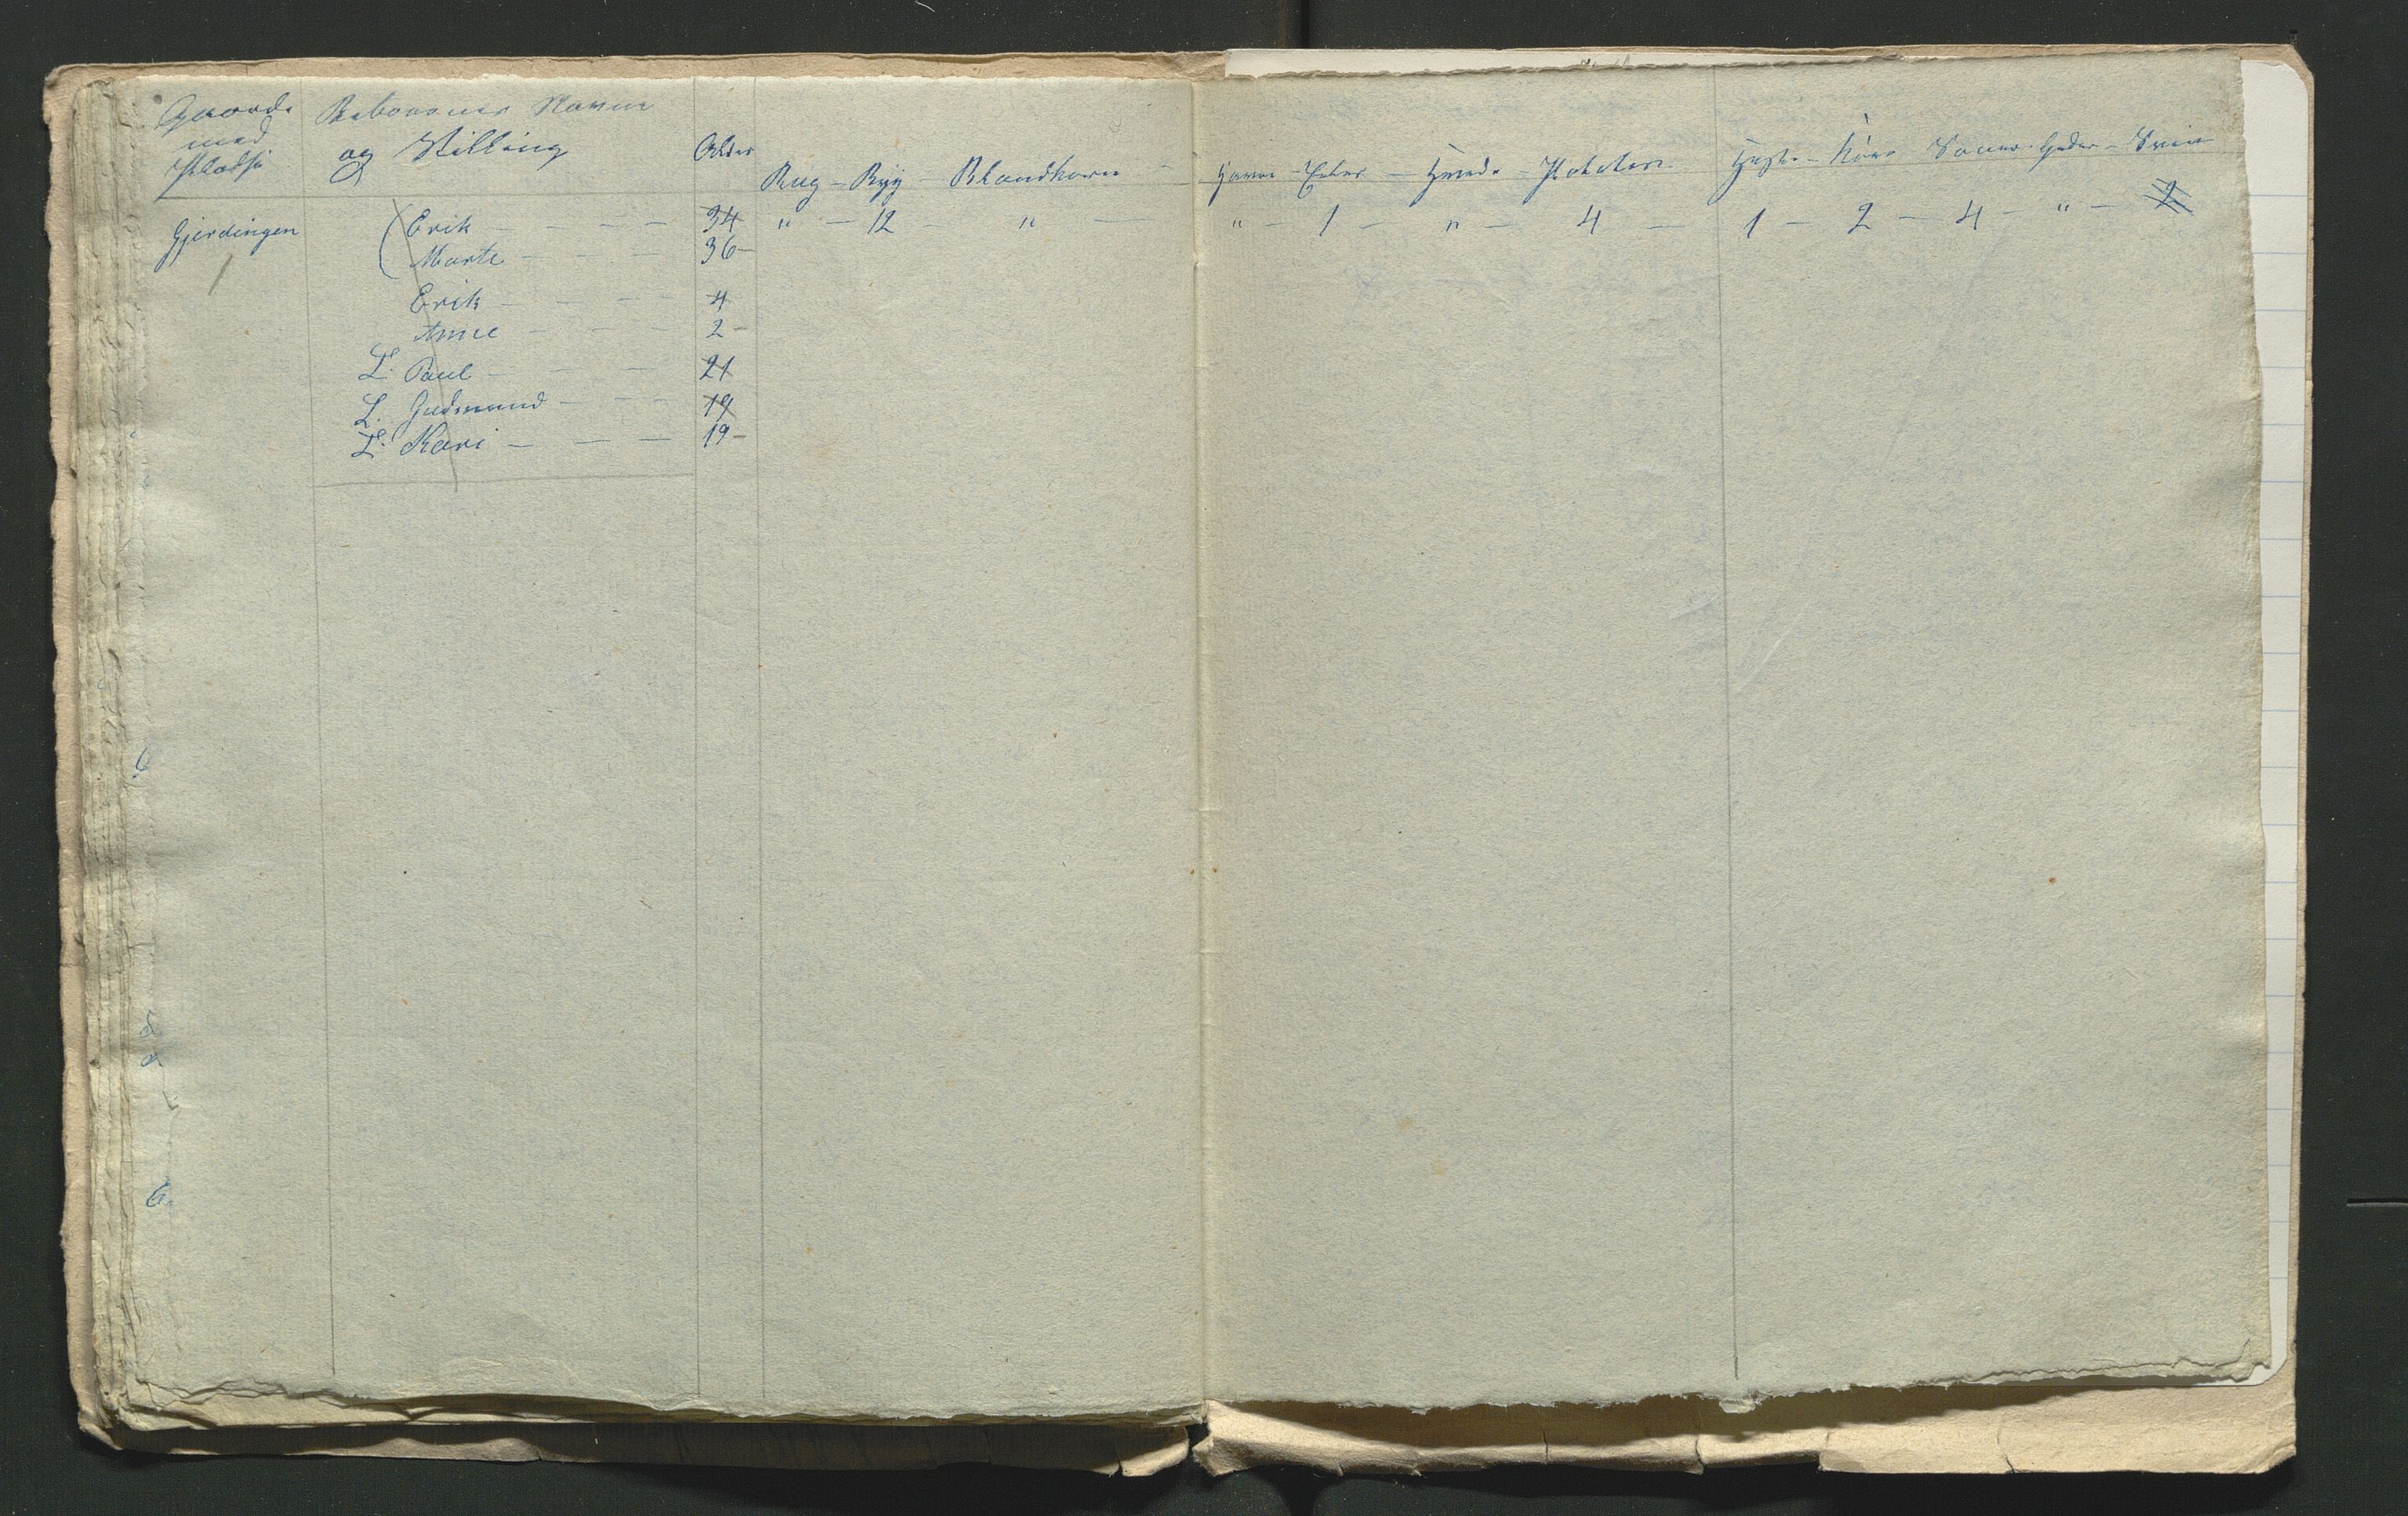 Gaarde Beboernes Navne
med
Pladse og Stilling Alder Rug - Byg - Blandkorn - Havre - Erter - Hvede - Poteter Heste - Kiør Souer - Geder - Sviin
Gjerdingen Erik - - - - 34 " - 12 - " - " - 1 - " - 4 - 1 - 2 - 4 - " - 2
Marte - - - - 36 -
Erik - - - - 4
Anne - - - - 2 -
L. Paul - - - 21
L. Gudmund - - - 19
L. Kari - - - 19 -